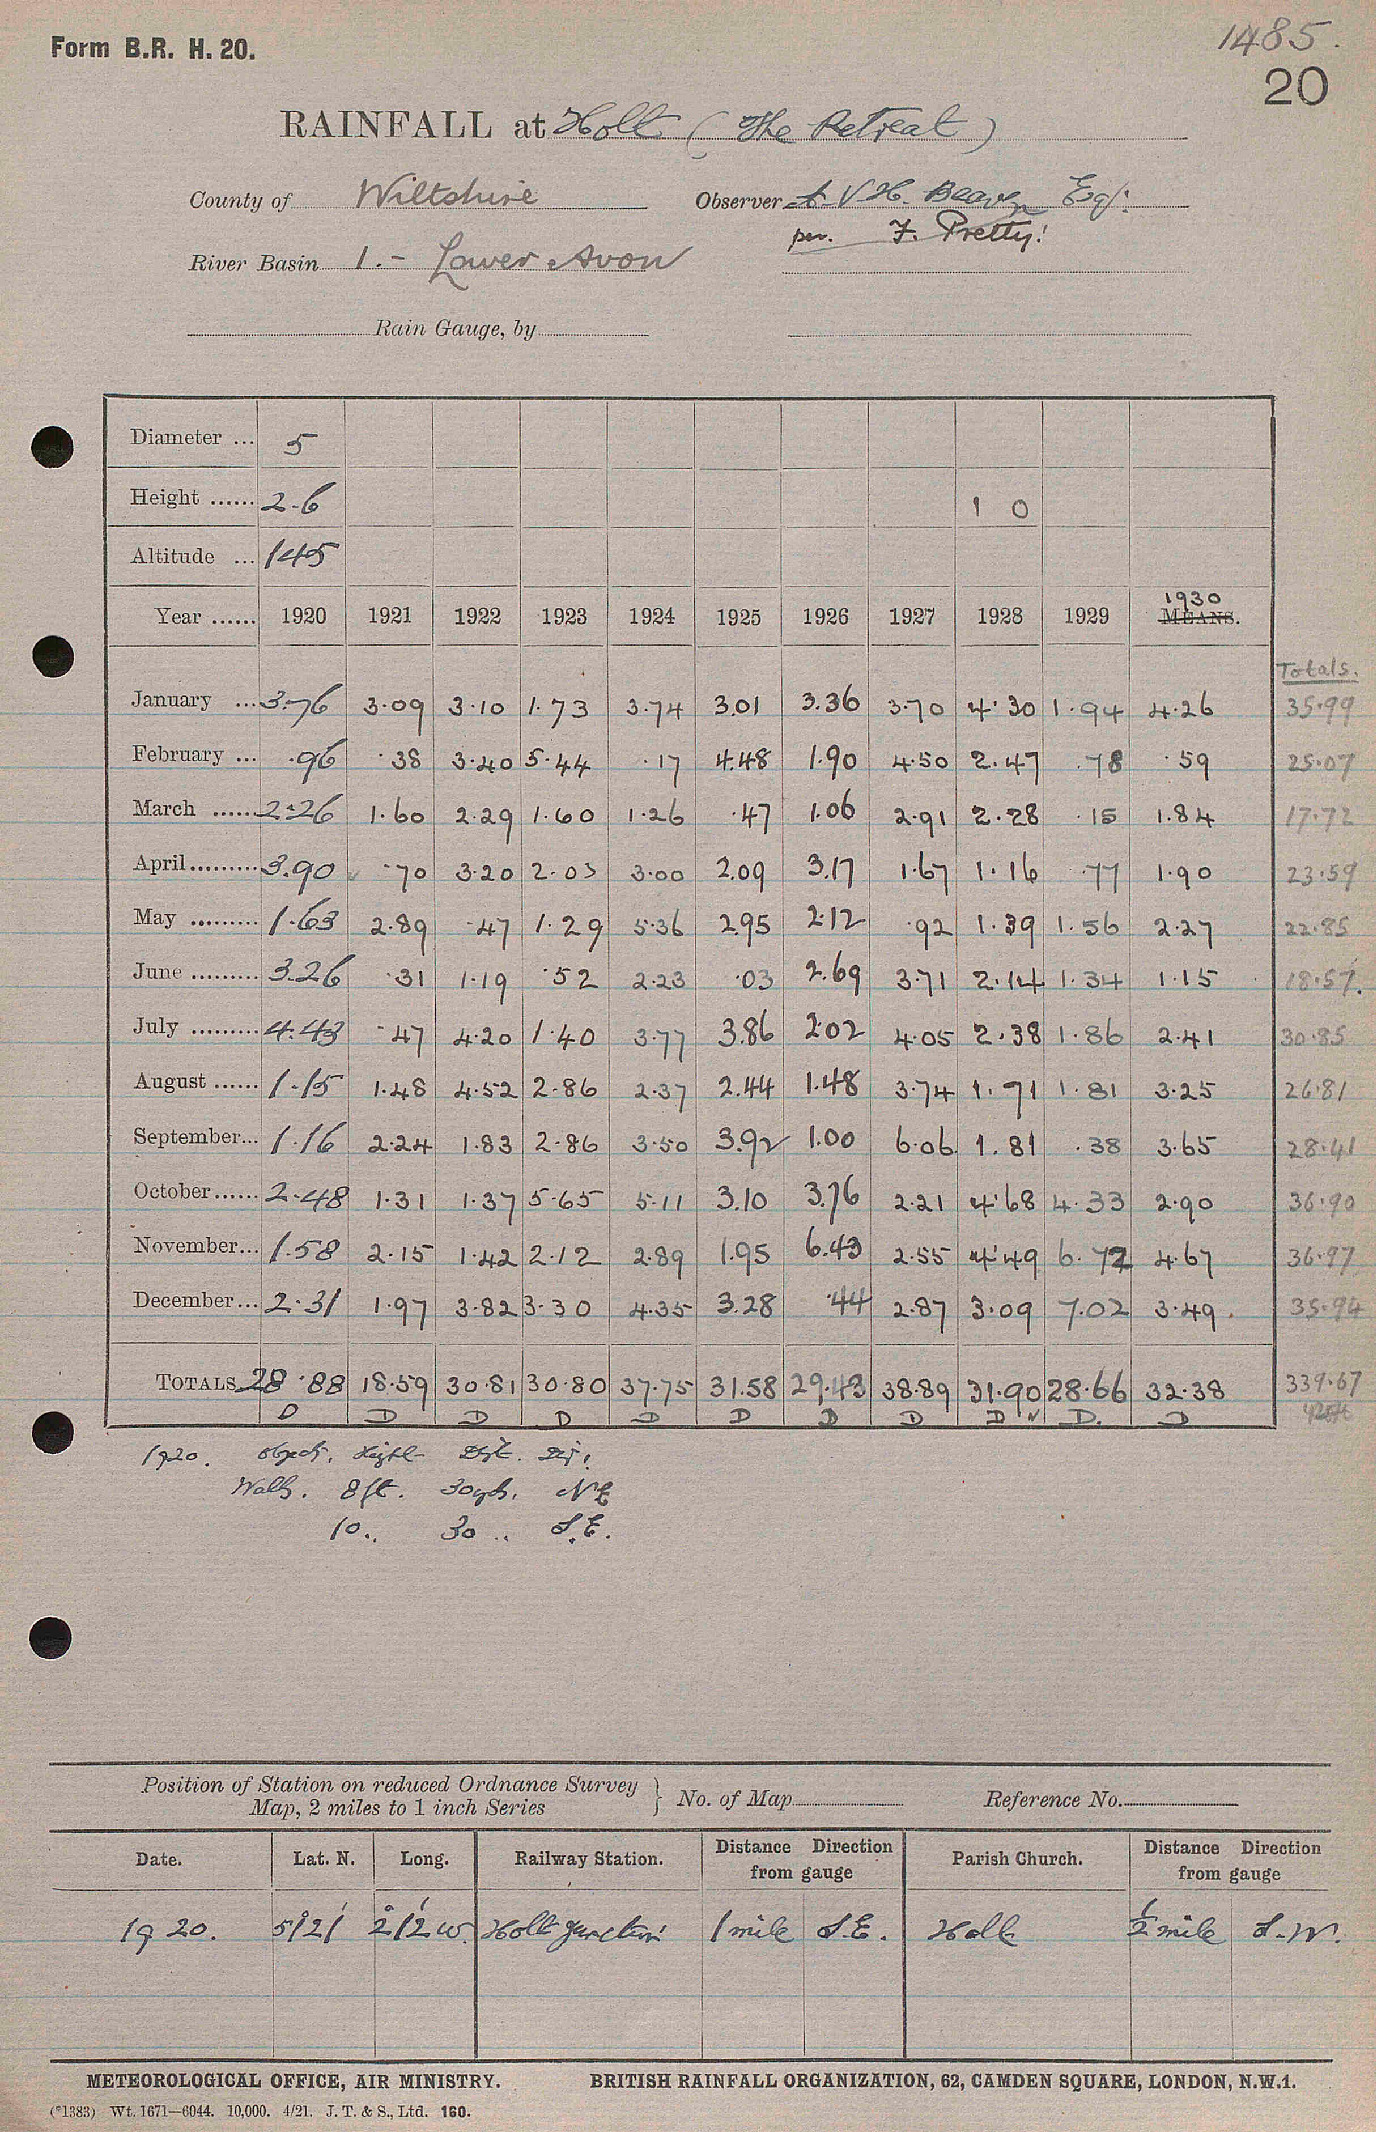 Form B.R. H. 20.
1485.
20
RAINFALL at Holt (The Retreat)
County of Wiltshire Observer A. V H. Beaven Esq:
per. F. Pretty.
River Basin 1.- Lower Avon
Rain Gauge, by
Diameter ... 5
Height ...... 2-6 1 0
Altitude ... 145
1930
Year ...... 1920 1921 1922 1923 1924 1925 1926 1927 1928 1929 MEANS.
Totals.
January ... 3.76 3.09 3.10 1.73 3.74 3.01 3.36 3.70 4.30 1.94 4.26 35.99
February ... .96 .38 3.40 5.44 .17 4.48 1.90 4.50 2.47 .78 .59 25.07
March ...... 2.26 1.60 2.29 1.60 1.26 .47 1.06 2.91 2.28 .15 1.84 17.72
April ......... 3.90 .70 3.20 2.03 3.00 2.09 3.17 1.67 1.16 .77 1.90 23.59
May ......... 1.63 2.89 .47 1.29 5.36 2.95 2.12 .92 1.39 1.56 2.27 22.85
June ......... 3.26 .31 1.19 .52 2.23 .03 2.69 3.71 2.14 1.34 1.15 18.57.
July ......... 4.43 .47 4.20 1.40 3.77 3.86 2.02 4.05 2.38 1.86 2.41 30.85
August ...... 1.15 1.48 4.52 2.86 2.37 2.44 1.48 3.74 1.71 1.81 3.25 26.81
September... 1.16 2.24 1.83 2.86 3.50 3.92 1.00 6.06 1.81 .38 3.65 28.41
October ...... 2.48 1.31 1.37 5.65 5.11 3.10 3.76 2.21 4.68 4.33 2.90 36.90
November... 1.58 2.15 1.42 2.12 2.89 1.95 6.43 2.55 4.49 6.72 4.67 36.97
December... 2.31 1.97 3.82 3.30 4.35 3.28 .44 2.87 3.09 7.02 3.49. 35.94
TOTALS 28.88 18.59 30.81 30.80 37.75 31.58 29.43 38.89 31.90 28.66 32.38 339.67
D D D D D D D D D N D. D
1920. Object. Height Dist. Dir.
Walls. 8ft. 30yds. NE
10.. 30 .. S.E.
Position of Station on reduced Ordnance Survey
Map, 2 miles to 1 inch Series } No. of Map Reference No.
Date. Lat. N. Long. Railway Station. Distance Direction from gauge Parish Church. Distance Direction from gauge
1920. 51°21' 2°12'W. Holt Junction 1 mile S.E. Holt ½ mile S.W.
METEOROLOGICAL OFFICE, AIR MINISTRY. BRITISH RAINFALL ORGANIZATION, 62, CAMDEN SQUARE, LONDON, N.W.1.
(*1383) Wt. 1671—6044. 10,000. 4/21. J. T. & S., Ltd. 160.